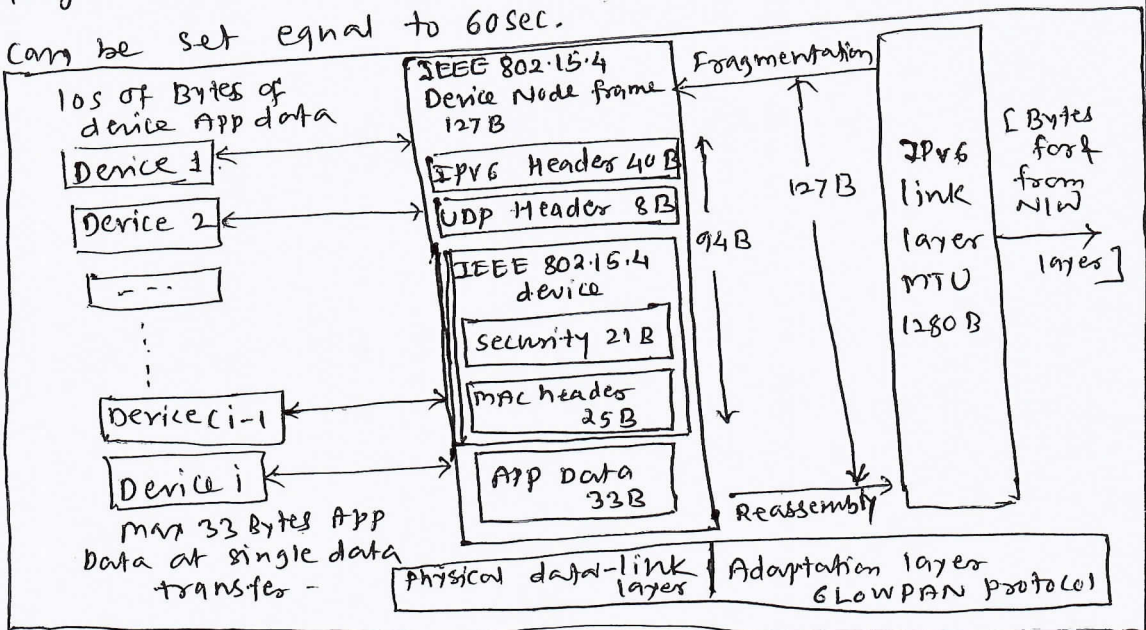 can be set equal to 60sec.
10s of Bytes of
device App data
Device 1
Device 2
---
Device (i-1
Device i
Max 33 Bytes App
Data at single data
transfer -
IEEE 802.15.4
Device Node frame
127B
IPV6 Header 40B
UDP Header 8B
IEEE 802.15.4
device
security 21B
MAC header
25B
App Data
33B
94B
Fragmentation
127B
Reassembly
IPv6
link
layer
MTU
1280B
[Bytes
for &
from
N/W
layer]
Physical data-link
layer
Adaptation layer
6LOWPAN protocol